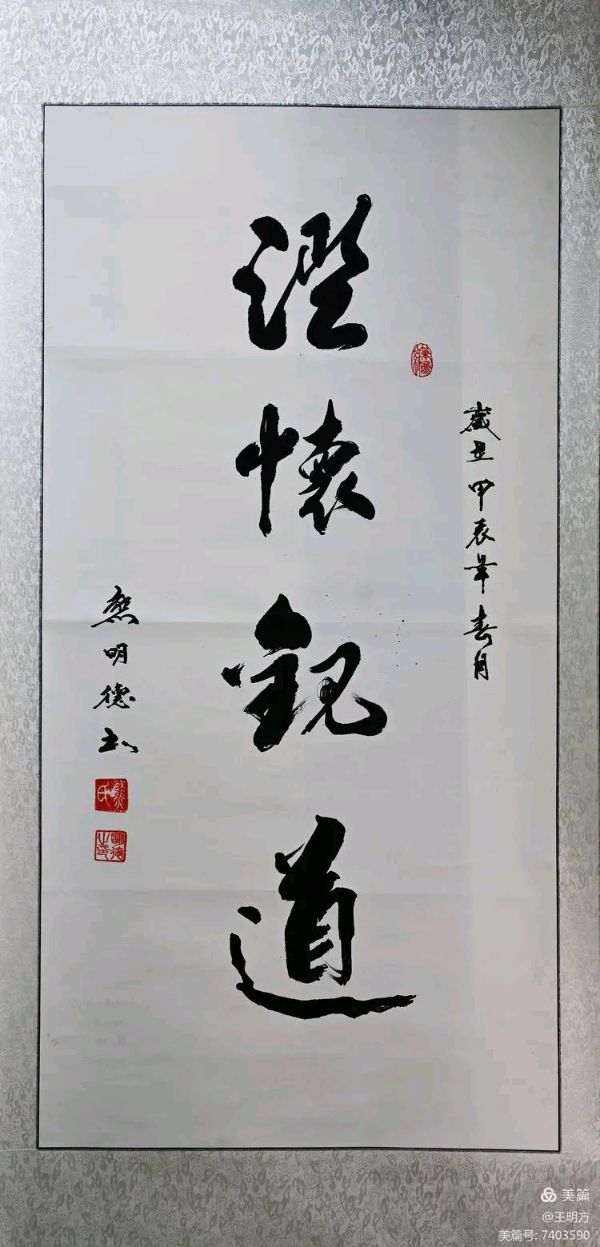 歲甲辰年春月
澄懷觀道
熊明德书
熊氏
美篇
@王明方
美篇号: 7403590